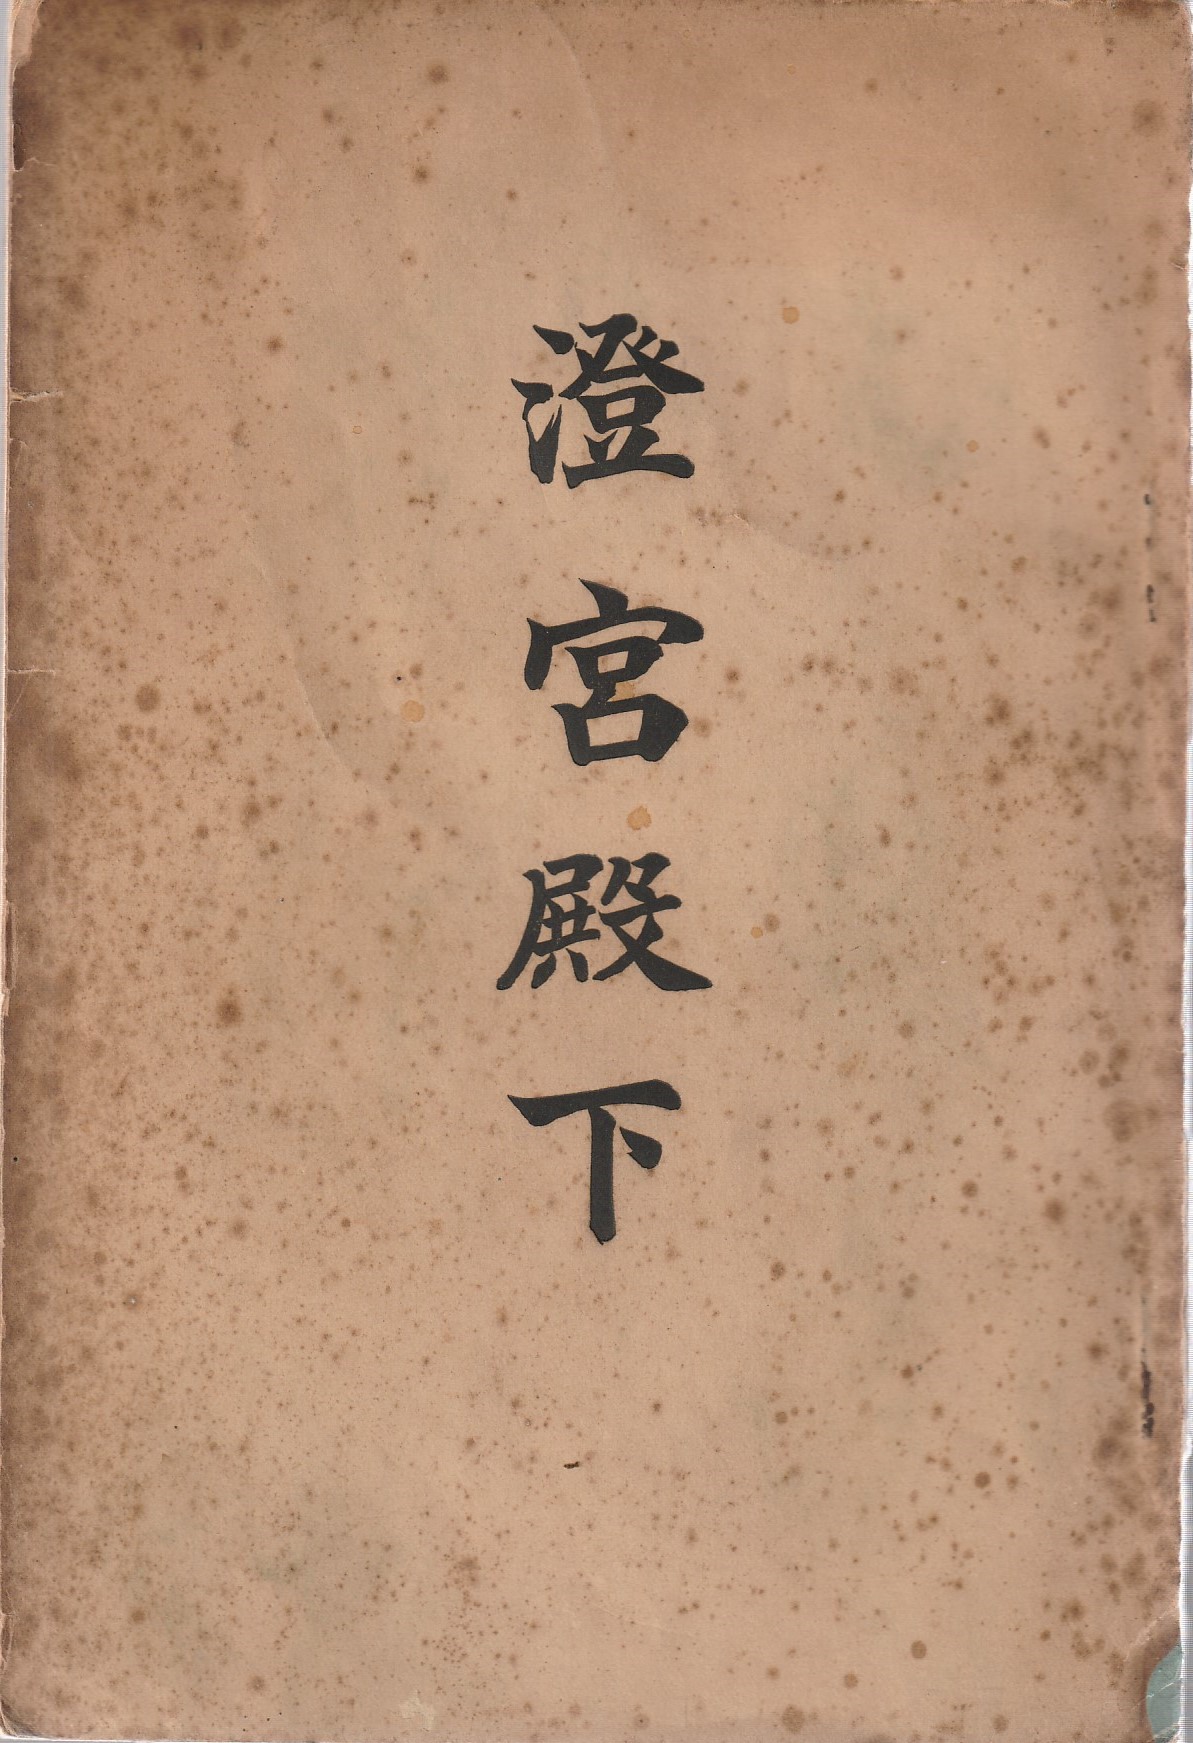 澄宮殿下